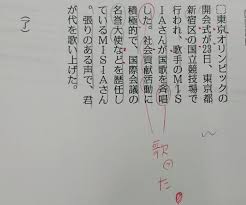 □東京オリンピックの
開会式が23日、東京都
新宿区の国立競技場で
行われ、歌手のMIS
IAさんが国歌を斉唱
した。社会貢献活動に
積極的で、国際会議の
名誉大使などを歴任し
ているMISIAさん
。張りのある声で、君
が代を歌い上げた。
(了)
歌った。